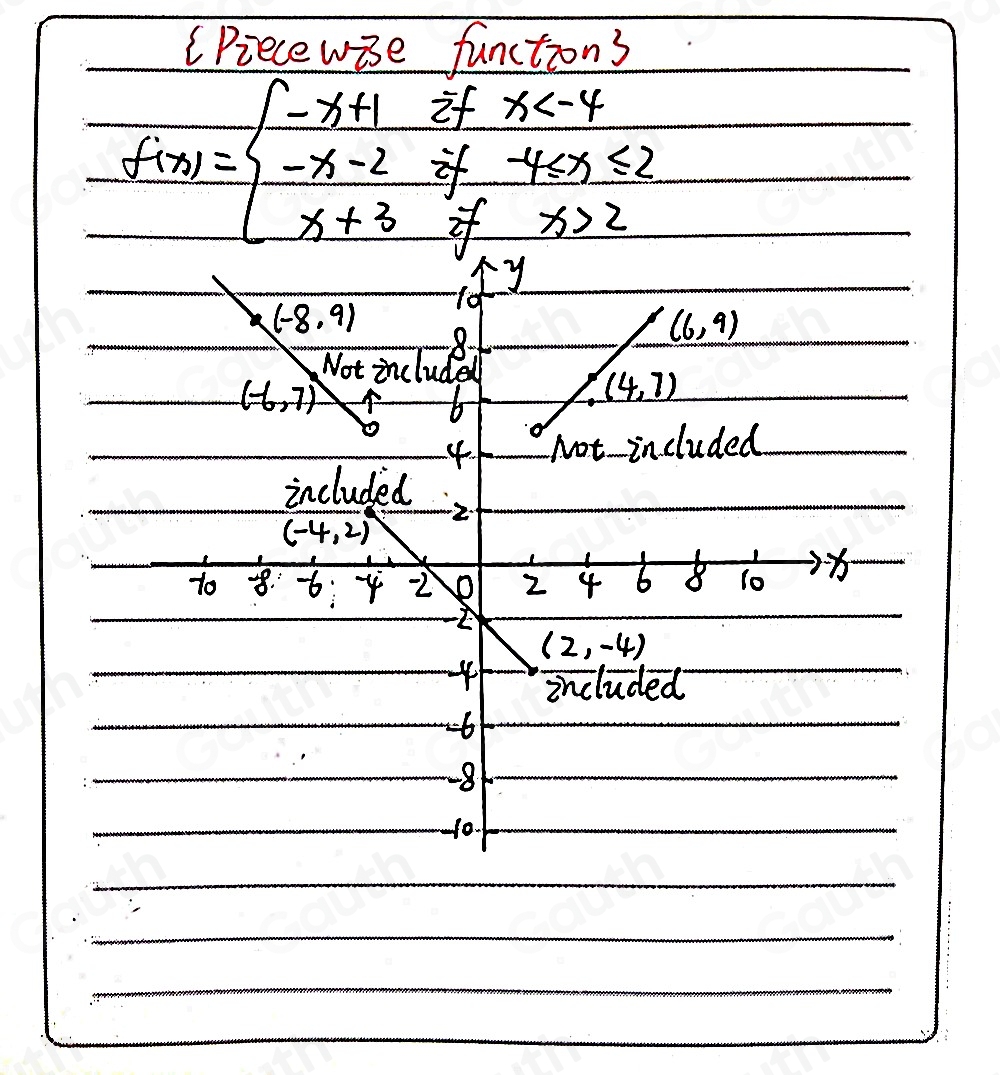 {Piecewise function}
f(x) = { -x+1 if x<-4
-x-2 if -4≤x≤2
x+3 if x>2
y
10
(-8,9)
(6,9)
8
Not included
(-6,7)
(4,7)
6
4
Not included
included
2
(-4,2)
-10 -8 -6 -4 -2 0 2 4 6 8 10 x
-2
(2,-4)
-4
included
-6
-8
-10
Gauth